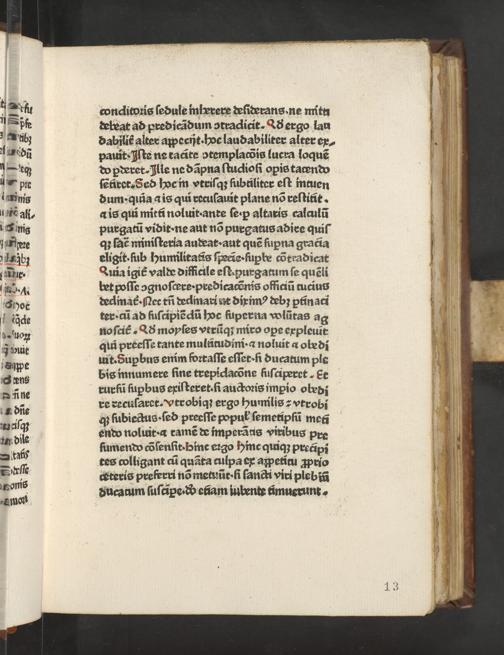 conditoris sedule inherere desiderans · ne mitti
debeat ad predicādum ↄtradicit · Qd ergo lau
dabiliť alter appecijt · hoc laudabiliter alter ex⸗
pauit · Iste ne tacite ↄtemplacōis lucra loquē
do pderet · Ille ne dāpna studiosi opis tacendo
sētiret · Sed hoc in vtrisq; subtiliter est intuen
dum · quia ⁊ is qui recusauit plane nō restitit ·
⁊ is qui mitti noluit · ante se · p altaris calculū
purgatū vidit · ne aut nō purgatus adire quis
q; sacͣ ministeria audeat · aut quē supna gracia
eligit · sub humilitatis specie · supbe cōtradicat
Quia igiť valde difficile est · purgatum se quēli
bet posse ↄgnoscere · predicacōnis officiū tucius
declinať · Nec tn̄ declinari vt dixim9 debz ptinaci
ter · cū ad suscipiēdū hoc superna volūtas ag
nosciť · Qd moyses vtrūq; miro ope expleuit
qui preesse tante multitudini · ⁊ noluit ⁊ obedi
uit · Supbus enim fortasse esset · si ducatum ple
bis innumere sine trepidacōne susciperet · Et
rursū supbus existeret · si auctoris impio obedi
re recusaret · Vtrobiq; ergo humilis ⁊ vtrobi
q; subiectus · sed preesse popul semetipsū meti
endo noluit · ⁊ tamē de imperātis viribus pre
sumendo cōsensit · hinc ergo hinc quiq; precipi
tes colligant cū quāta culpa ex appetitu pprio
ceteris preferri nō metuūt · si sancti viri plebiū
ducatum suscipe · do etiam iubente timuerunt ·
13